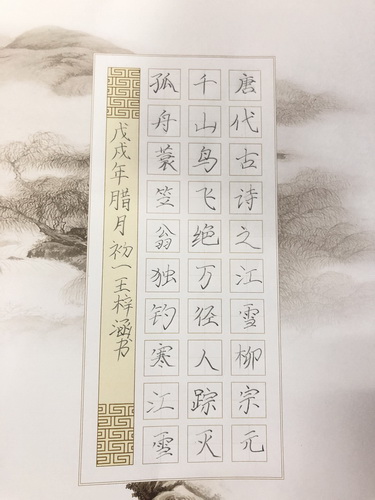 唐代古诗之江雪柳宗元
千山鸟飞绝万径人踪灭
孤舟蓑笠翁独钓寒江雪
戊戌年腊月初一王梓涵书